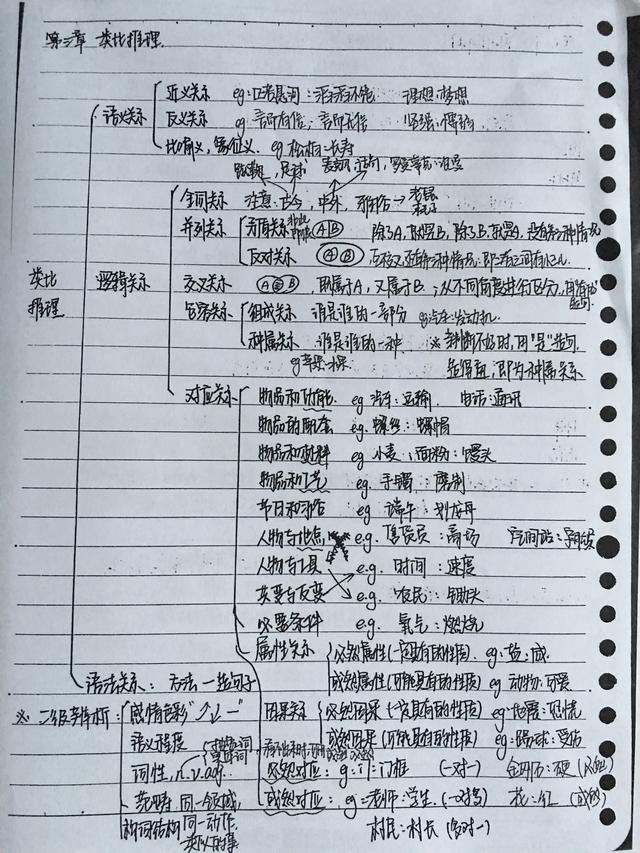 第三章 类比推理
近义关系 eg: : 理想:梦想
语义关系 反义关系 eg 言而有信:言而无信 坚强:懦弱
比喻义,象征义. eg 松柏:长寿
全同关系 注意:古今,中外, →
并列关系 矛盾关系 (A|B) 除了A,就是B,除了B,就是A,没有第三种情况
反对关系 (A B)
类比推理 逻辑关系 交叉关系 (A B) 既属于A,又属于B.;从不同角度进行区分,
包容关系 组成关系 谁是谁的一部分 eg 汽车:发动机
种属关系 谁是谁的一种 ※ 判断不好时,用"是"造句
eg 苹果:水果 即为种属关系
对应关系 物品和功能 eg 汽车:运输 电话:通讯
物品的配套 eg. 螺丝:螺帽
物品和材料 eg 小麦:面粉:馒头
物品和工艺 eg. 手镯:磨制
节日和习俗 eg 端午:划龙舟
人物与地点 e.g. 售货员:商场
人物与工具 e.g. 时间:速度
正变与反变 e.g. 农民:锄头
必要条件 e.g. 氧气:燃烧
属性关系 必然属性(一定具有的性质) eg:盐:咸
语法关系:方法—造句子 或然属性(可能具有的性质) eg 动物:可爱
※ 二级辨析: 感情色彩"↑↓—" 因果关系 必然因果(一定具有的性质) eg:地震:恐慌
语义程度 或然因果(可能具有的性质) eg:踢球:受伤
词性,n.v.adj. 必然对应: eg:门:门框 (一对一) 金刚石:硬(必然)
范畴:同一领域, 或然对应: eg:老师:学生(一对多) 花:红 (或然)
构词结构 同一动作. 村民:村长 (多对一)